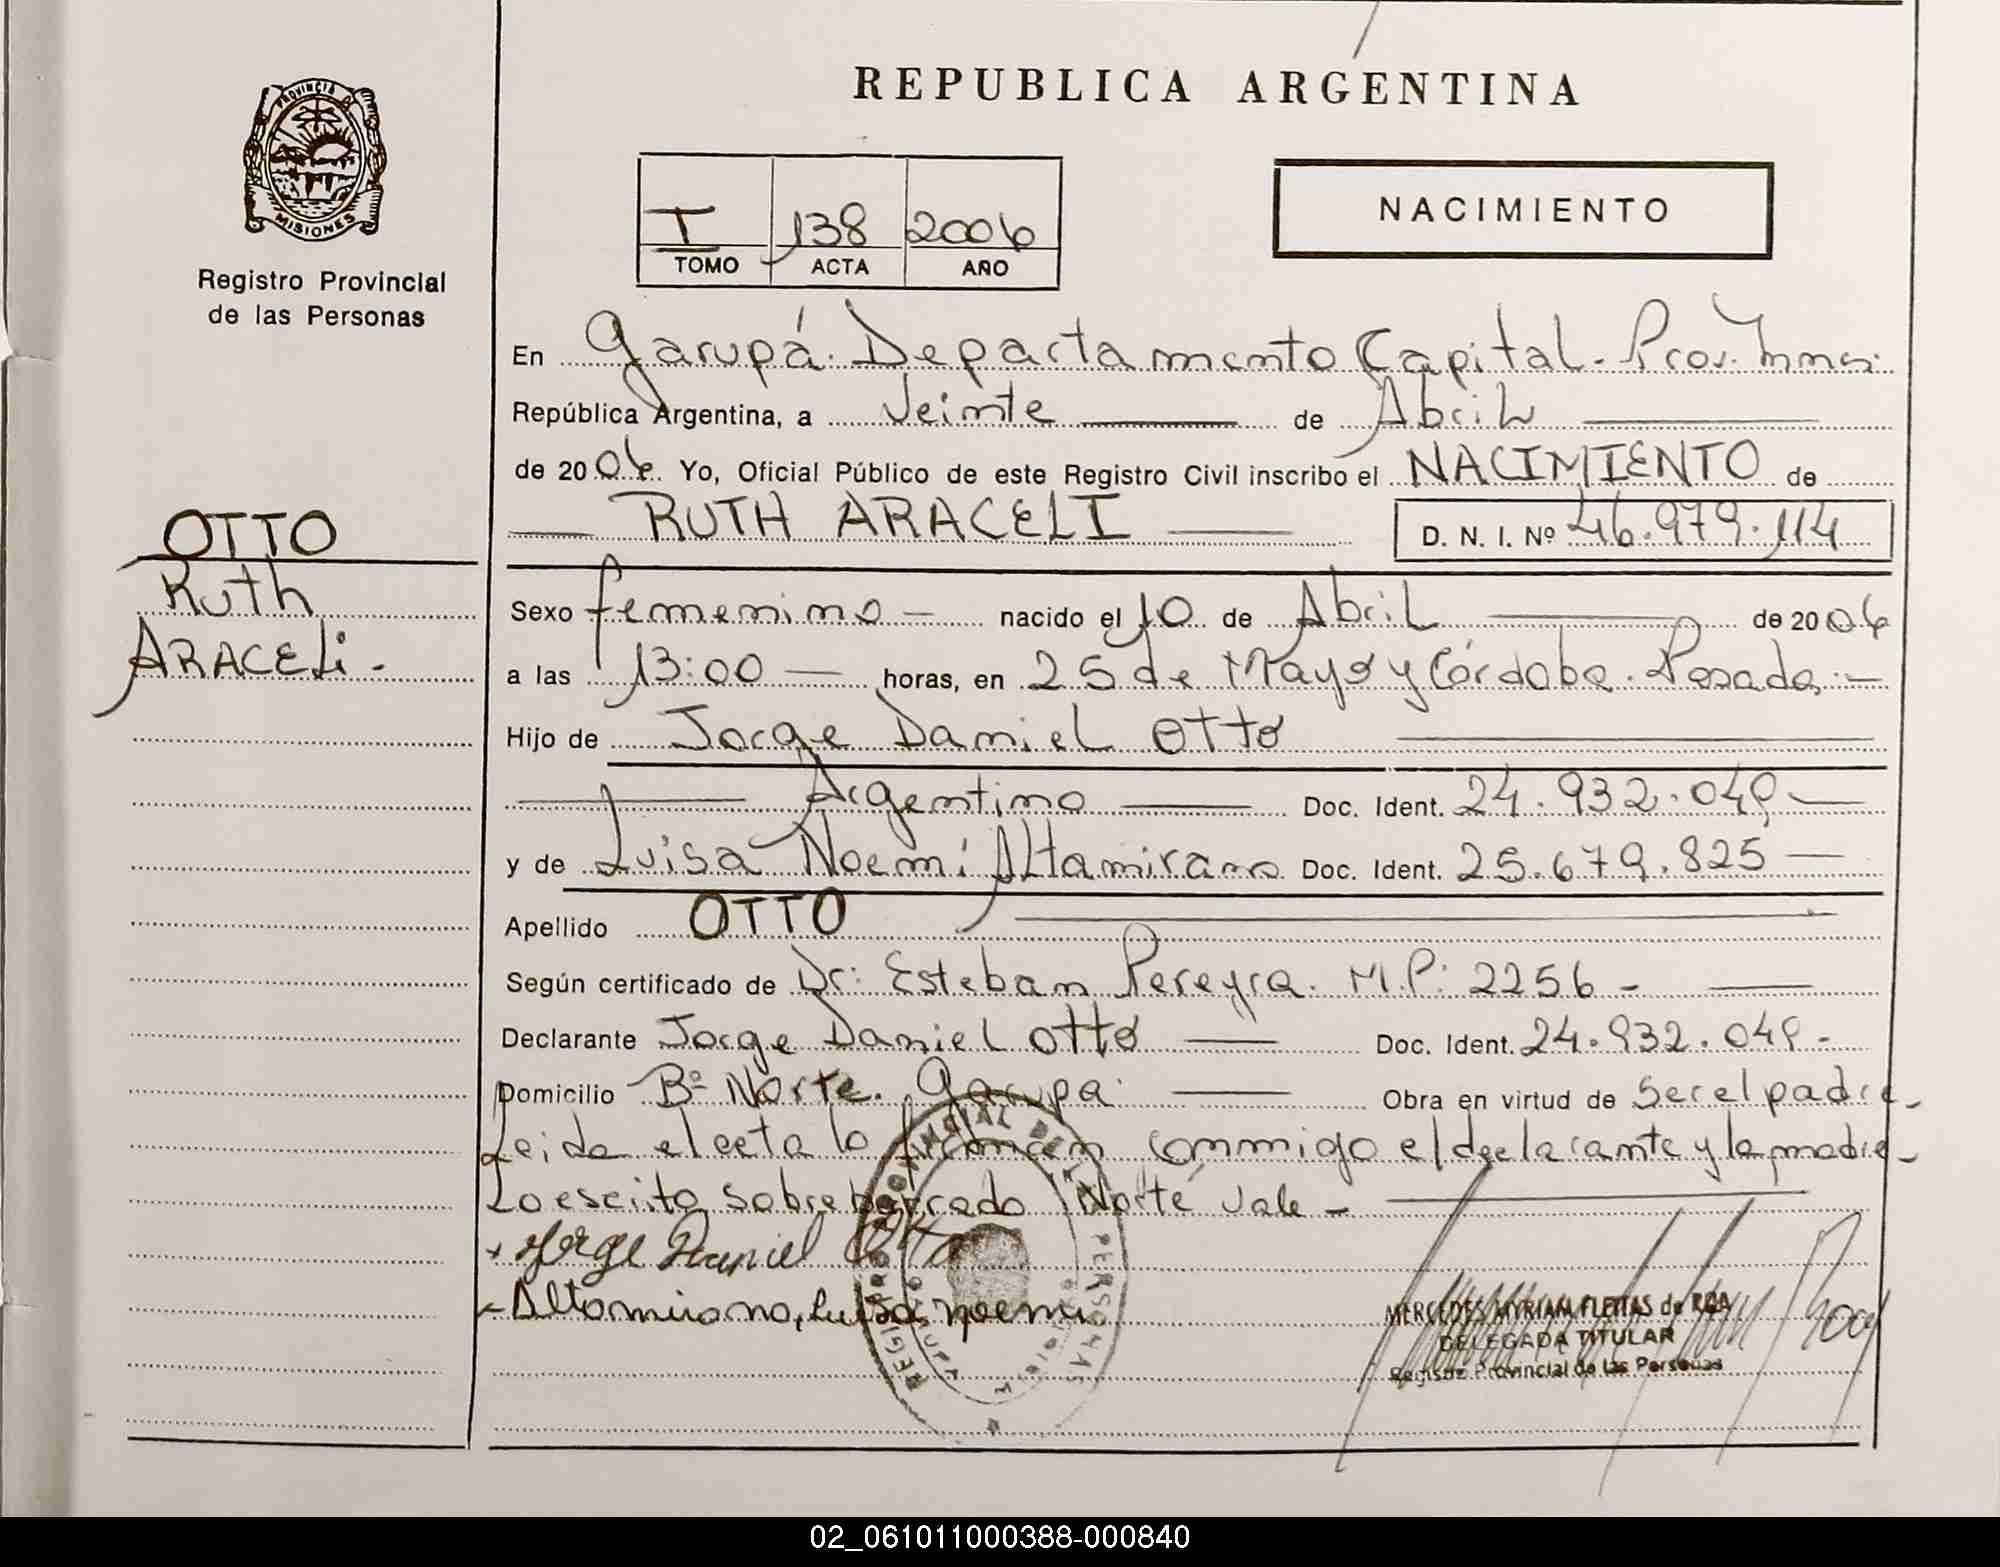 PROVINCIA D
MISIONES
Registro Provincial
de las Personas
OTTO
Ruth
ARACELi.-
REPUBLICA ARGENTINA
T 138 2006
TOMO ACTA AÑO
NACIMIENTO
En Garupá. Departamento Capital. Prov. Mnes.
República Argentina, a Veinte de Abril
de 2006. Yo, Oficial Público de este Registro Civil inscribo el NACIMIENTO de
RUTH ARACELI D. N. I. Nº 46.979.114
Sexo femenino - nacido el 10 de Abril de 2006
a las 13:00 horas, en 25 de Mayo y Córdoba. Posadas.-
Hijo de Jorge Daniel Otto
Argentino Doc. Ident. 24.932.049
y de Luisa Noemí Altamirano Doc. Ident. 25.679.825
Apellido OTTO
Según certificado de Dr: Esteban Pereyra. M.P: 2256 -
Declarante Jorge Daniel Otto Doc. Ident. 24.932.049.-
Domicilio Bº Norte. Garupá Obra en virtud de ser el padre-
Leida el acta la firman conmigo el declarante y la madre-
Lo escrito sobreborrado "Norte" vale -
Jorge Daniel Otto
Altamirano, Luisa noemi
REGISTRO PROVINCIAL DE LAS PERSONAS
MERCEDES MYRIAM FLEITAS de ROA
DELEGADA TITULAR
Registro Provincial de las Personas
02_061011000388-000840